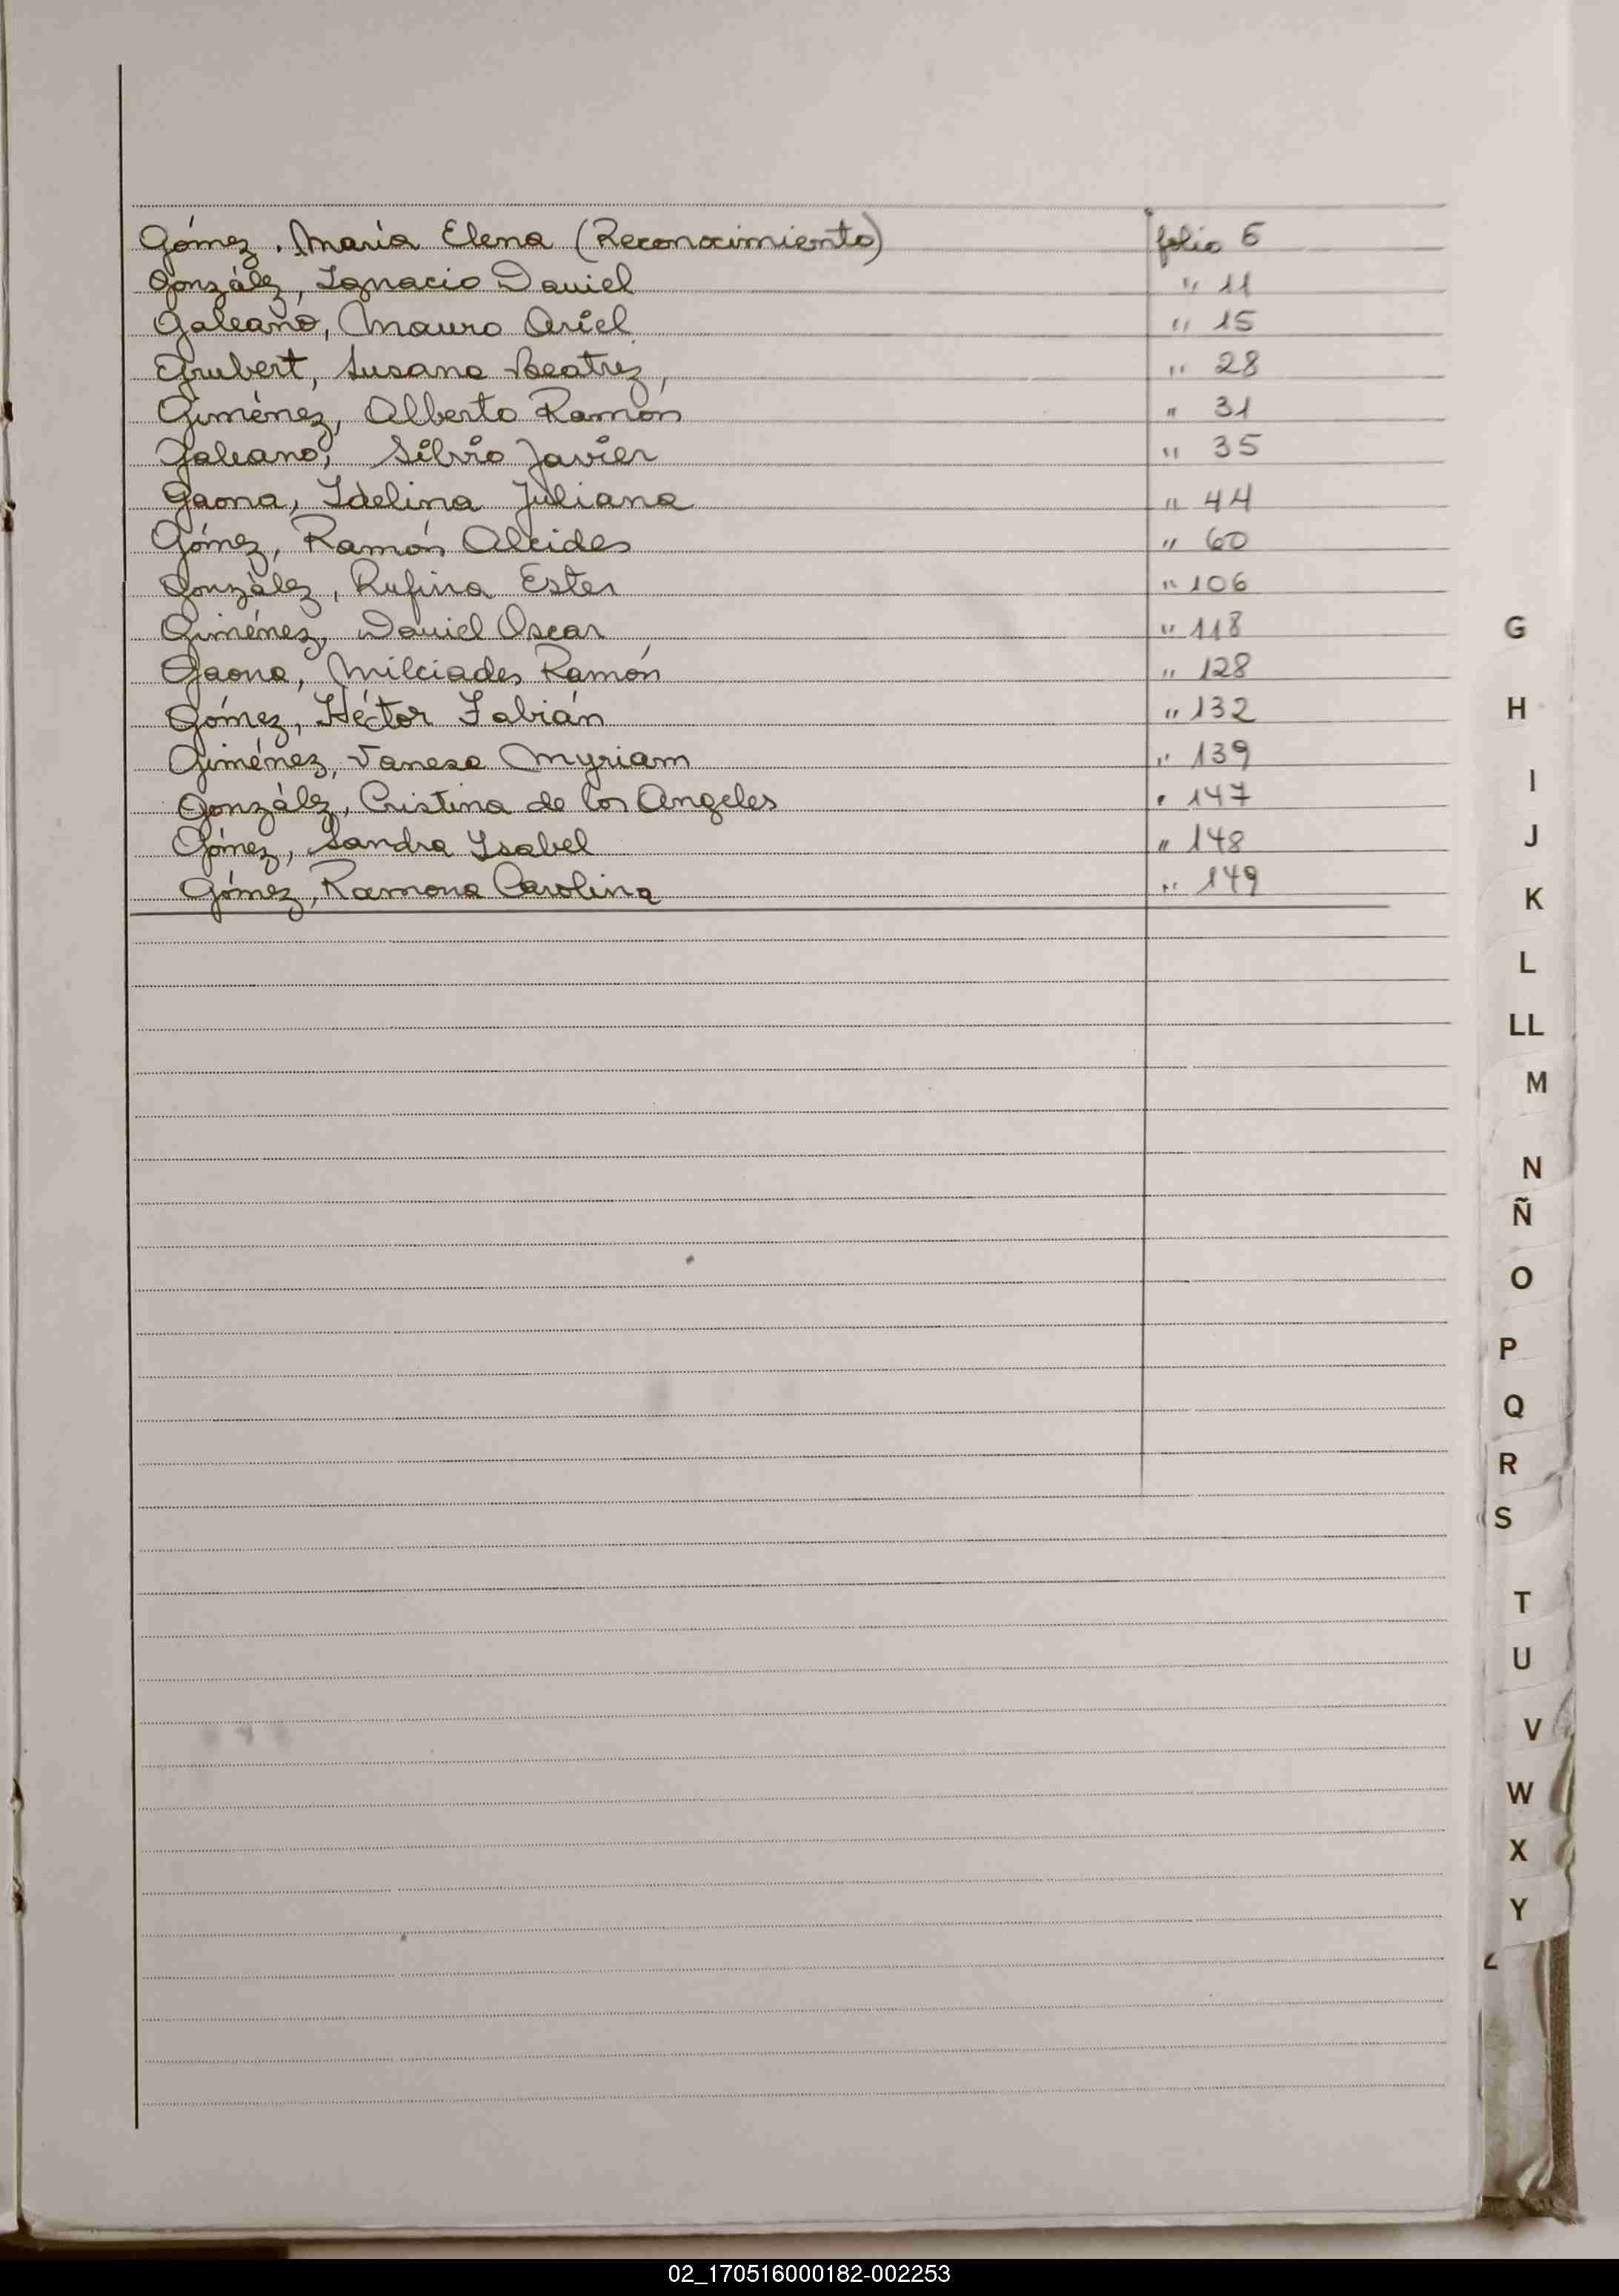 Gómez, María Elena (Reconocimiento) folio 6
González, Ignacio Daniel " 11
Galeano, Mauro Ariel " 15
Grubert, Susana Beatriz, " 28
Giménez, Alberto Ramón " 31
Galeano, Silvio Javier " 35
Gaona, Idelina Juliana " 44
Gómez, Ramón Alcides " 60
González, Rufina Ester " 106
Giménez, Daniel Oscar " 118
Gaona, Milciades Ramón " 128
Gómez, Héctor Fabián " 132
Giménez, Vanesa Myriam " 139
González, Cristina de los Angeles " 147
Gómez, Sandra Isabel " 148
Gómez, Ramona Carolina " 149
G
H
I
J
K
L
LL
M
N
Ñ
O
P
Q
R
S
T
U
V
W
X
Y
02_170516000182-002253